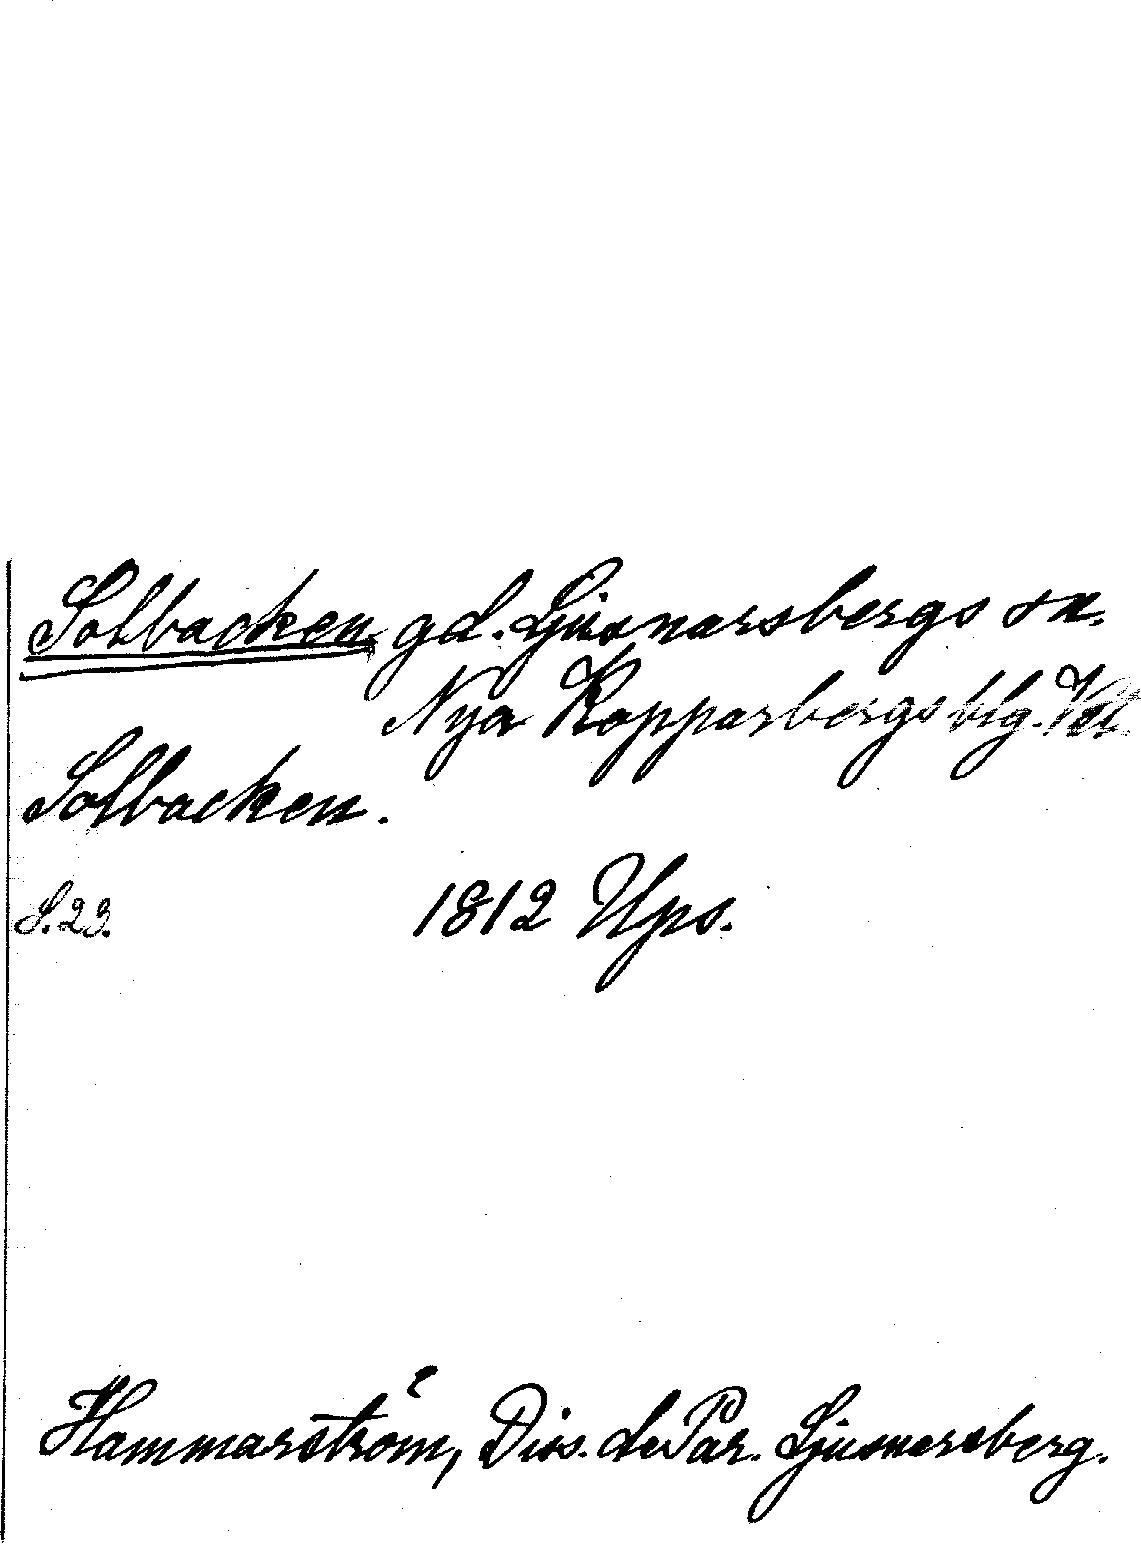 Solbacken gd. Ljusnarsbergs sn.
Nya Kopparbergs blg. Vstm.
Solbacken.
S. 23. 1812 Ups.
Hammarström, Diss. de Par. Ljusnarsberg.